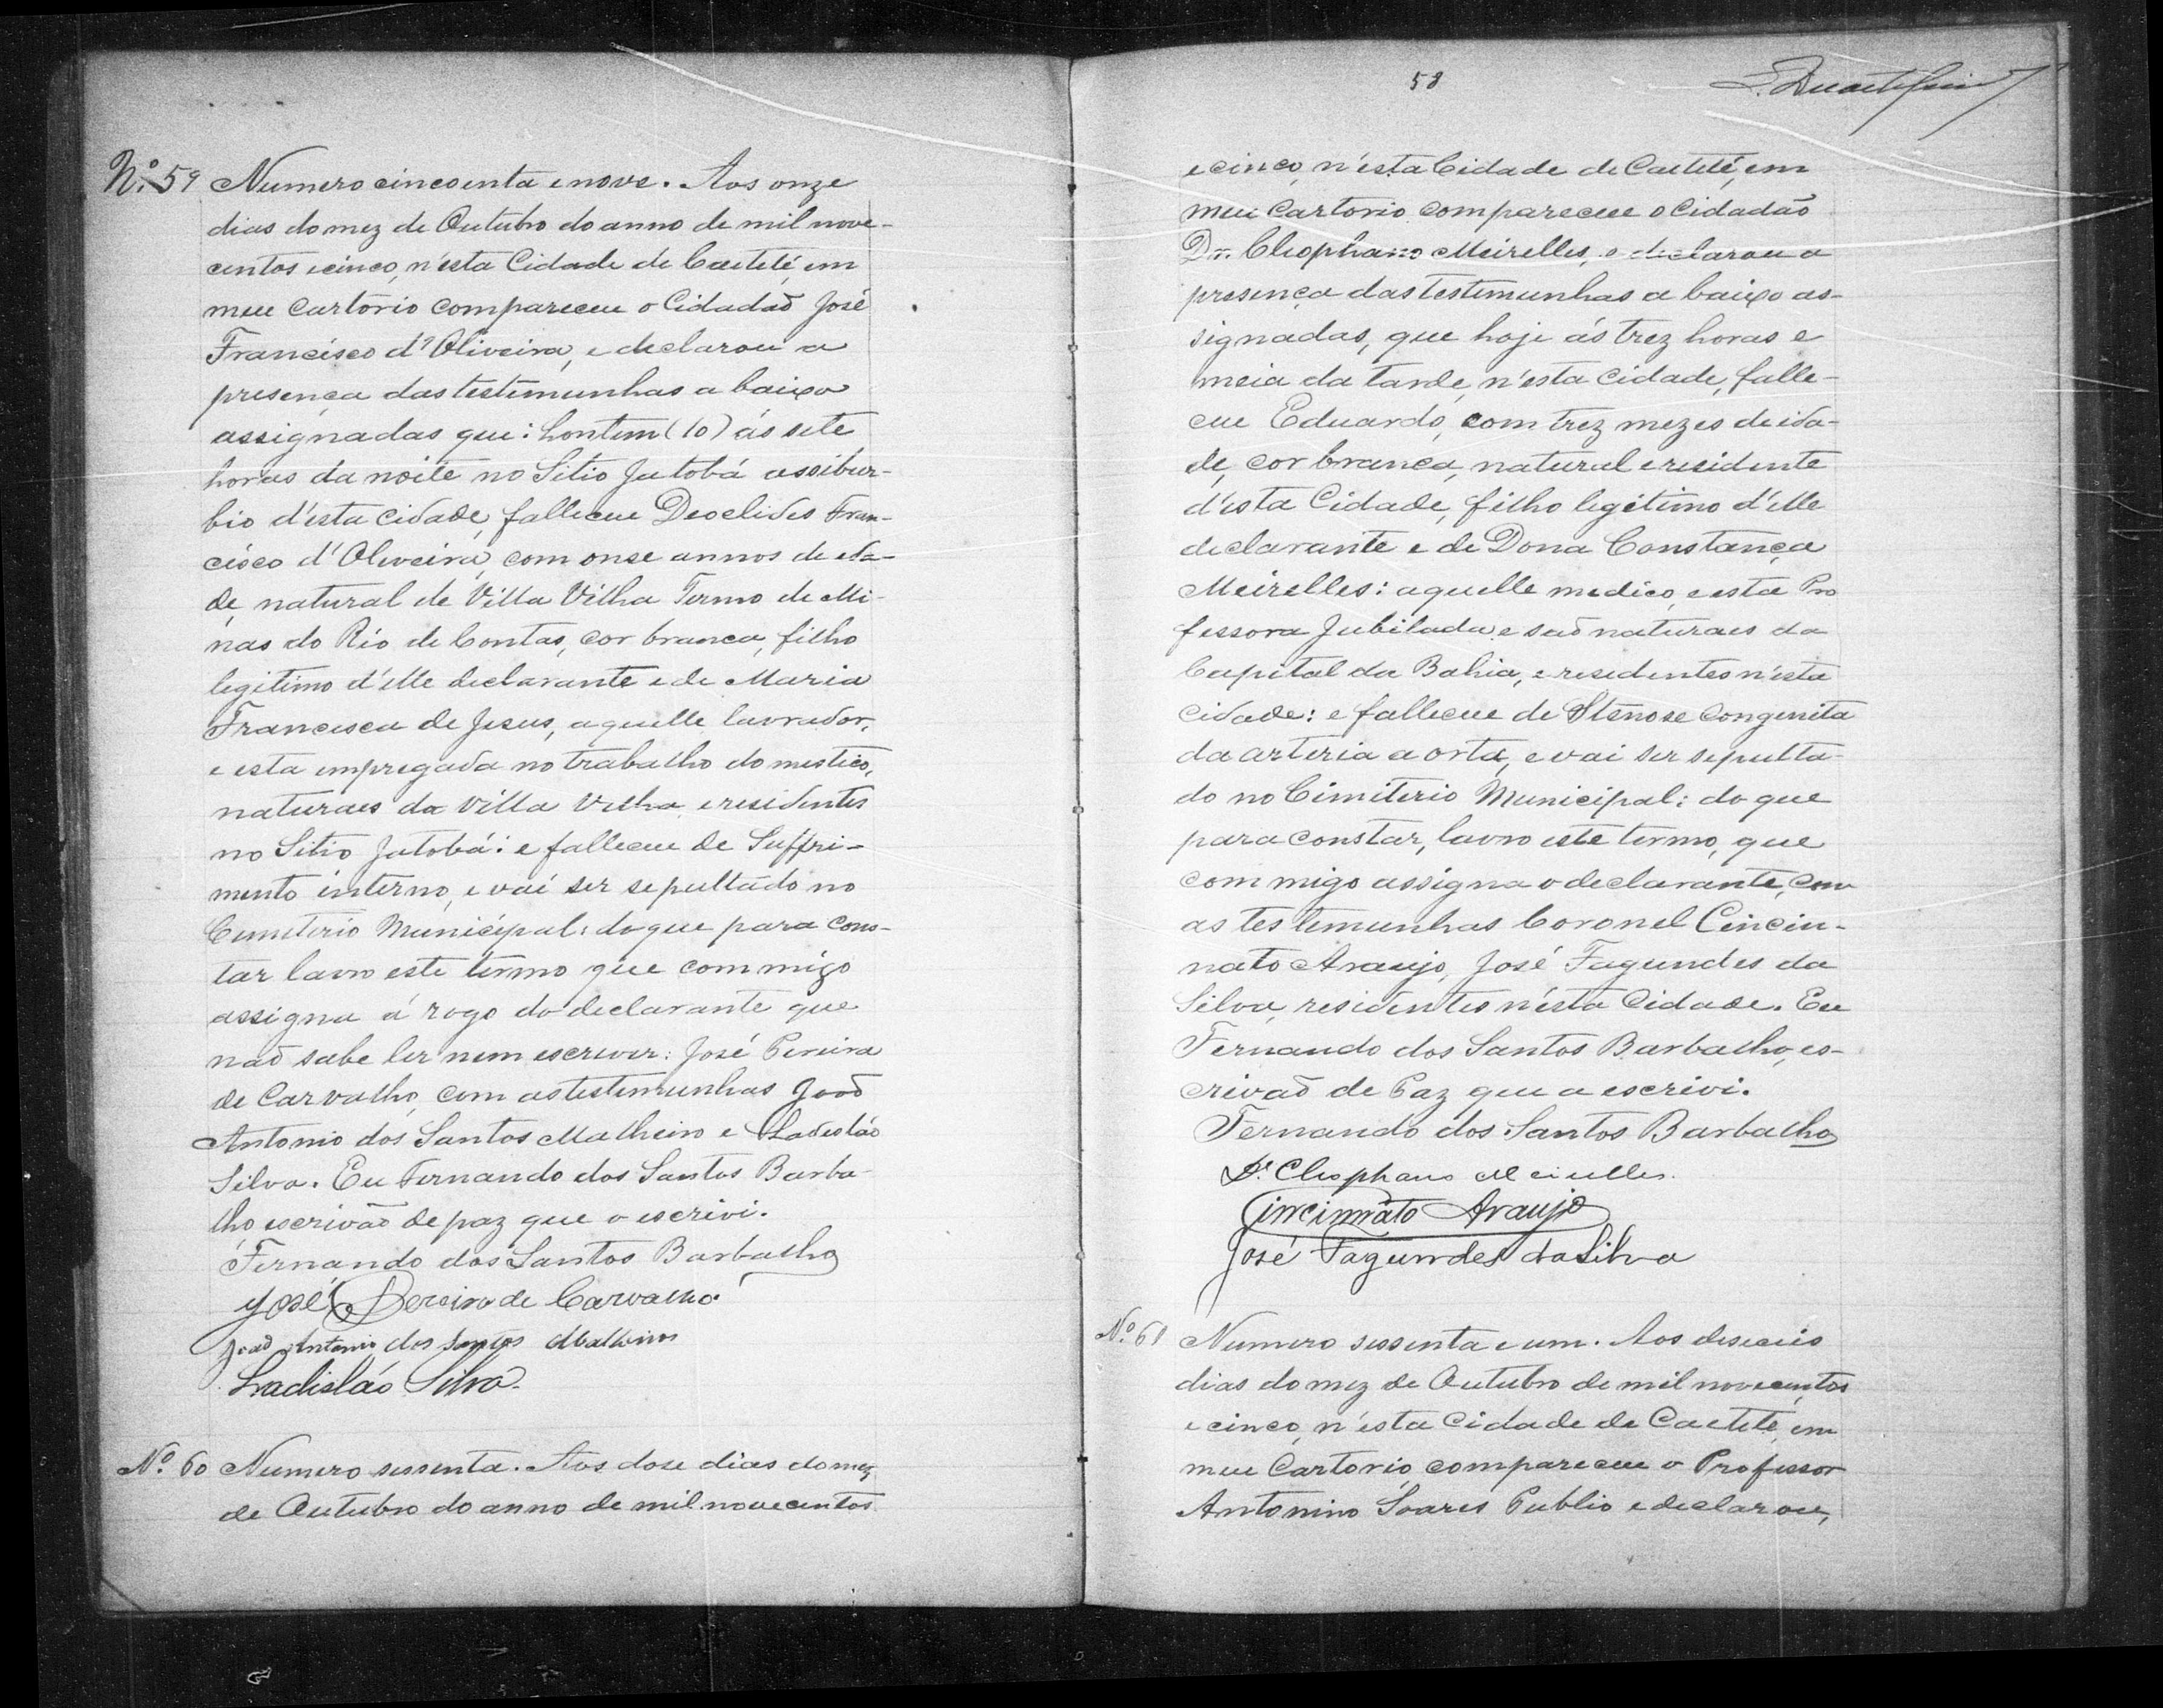 Nº. 59 Numero cincoenta e nove. Aos onze
dias do mez de Outubro do anno de mil nove-
centos e cinco, n'esta Cidade de Caeteté, em
meu Cartorio compareceu o Cidadaõ José
Francisco d'Oliveira, e declarou a
presença das testemunhas a baixo
assignadas que: hontem (10) ás sete
horas da noite no Sitio Jatobá assibur-
bio d'esta cidade, falleceu Deoclides Fran-
cisco d'Oliveira, com onse annos de eda-
de, natural de Villa Vilha Termo de Mi-
nas do Rio de Contas, cor branca, filho
legitimo d'elle declarante e de Maria
Francisca de Jesus, aquelle lavrador,
e esta empregada no trabalho domestico,
naturaes da Villa Velha e residentes
no Sitio Jatobá: e falleceu de Suffri-
mento interno, e vai ser sepultado no
Cemeterio Municipal: do que para cons-
tar lavro este termo que commigo
assigna á rogo do declarante que
naõ sabe ler nem escrever: José Pereira
de Carvalho, com as testemunhas Joaõ
Antonio dos Santos Malheiro e Ladesláo
Silva. Eu Fernando dos Santos Barba-
lho escrivão de paz que o escrivi.
Fernando dos Santos Barbalho
José Pereira de Carvalho
Joaõ Antonio dos Santos Malheiros
Ladisláo Silva.
Nº. 60 Numero sessenta. Aos dose dias do mez
de Outubro do anno de mil novecentos
58
e cinco, n'esta Cidade de Caeteté, em
meu Cartorio compareceu o Cidadaõ
Dr. Cleophano Meirelles, e declarou a
presença das testemunhas a baixo as-
signadas, que hoje ás trez horas e
meia da tarde, n'esta cidade, falle-
ceu Eduardo, com trez mezes de ida-
de, cor branca, natural e residente
d'esta Cidade, filho legitimo d'elle
declarante e de Dona Constança
Meirelles: aquelle medico, e esta Pro
fessora Jubilada e saõ naturaes da
Capital da Bahia, e residentes n'esta
cidade: e falleceu de Stenose Congenita
da arteria aorta, e vai ser sepulta-
do no Cimiterio Municipal: do que
para constar, lavro este termo, que
com migo assigna o declarante, com
as testemunhas Coronel Cincin-
nato Araujo, José Fagundes da
Silva, residentes n'esta Cidade. Eu
Fernando dos Santos Barbalho, es-
crivaõ de Paz que a escrivi.
Fernando dos Santos Barbalho
Dr. Cleophano Meirelles.
Cincinnato Araujo
José Fagundes da Silva
Nº. 61 Numero sessenta e um. Aos deseseis
dias do mez de Outubro de mil novecentos
e cinco, n'esta Cidade de Caeteté, em
meu Cartorio, compareceu o Professor
Antonino Soares Publio e declarou,